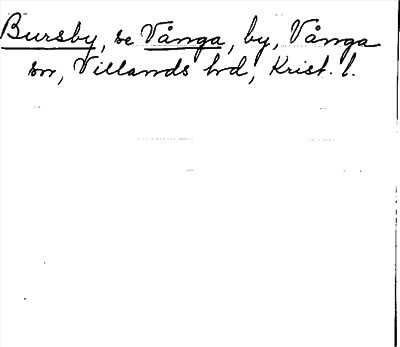 Bursby, se Vånga, by, Vånga
sn, Villands hd, Krist. l.